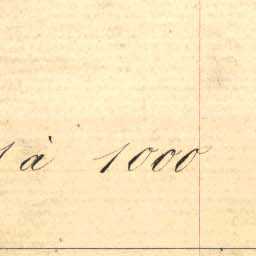 1 à 1000